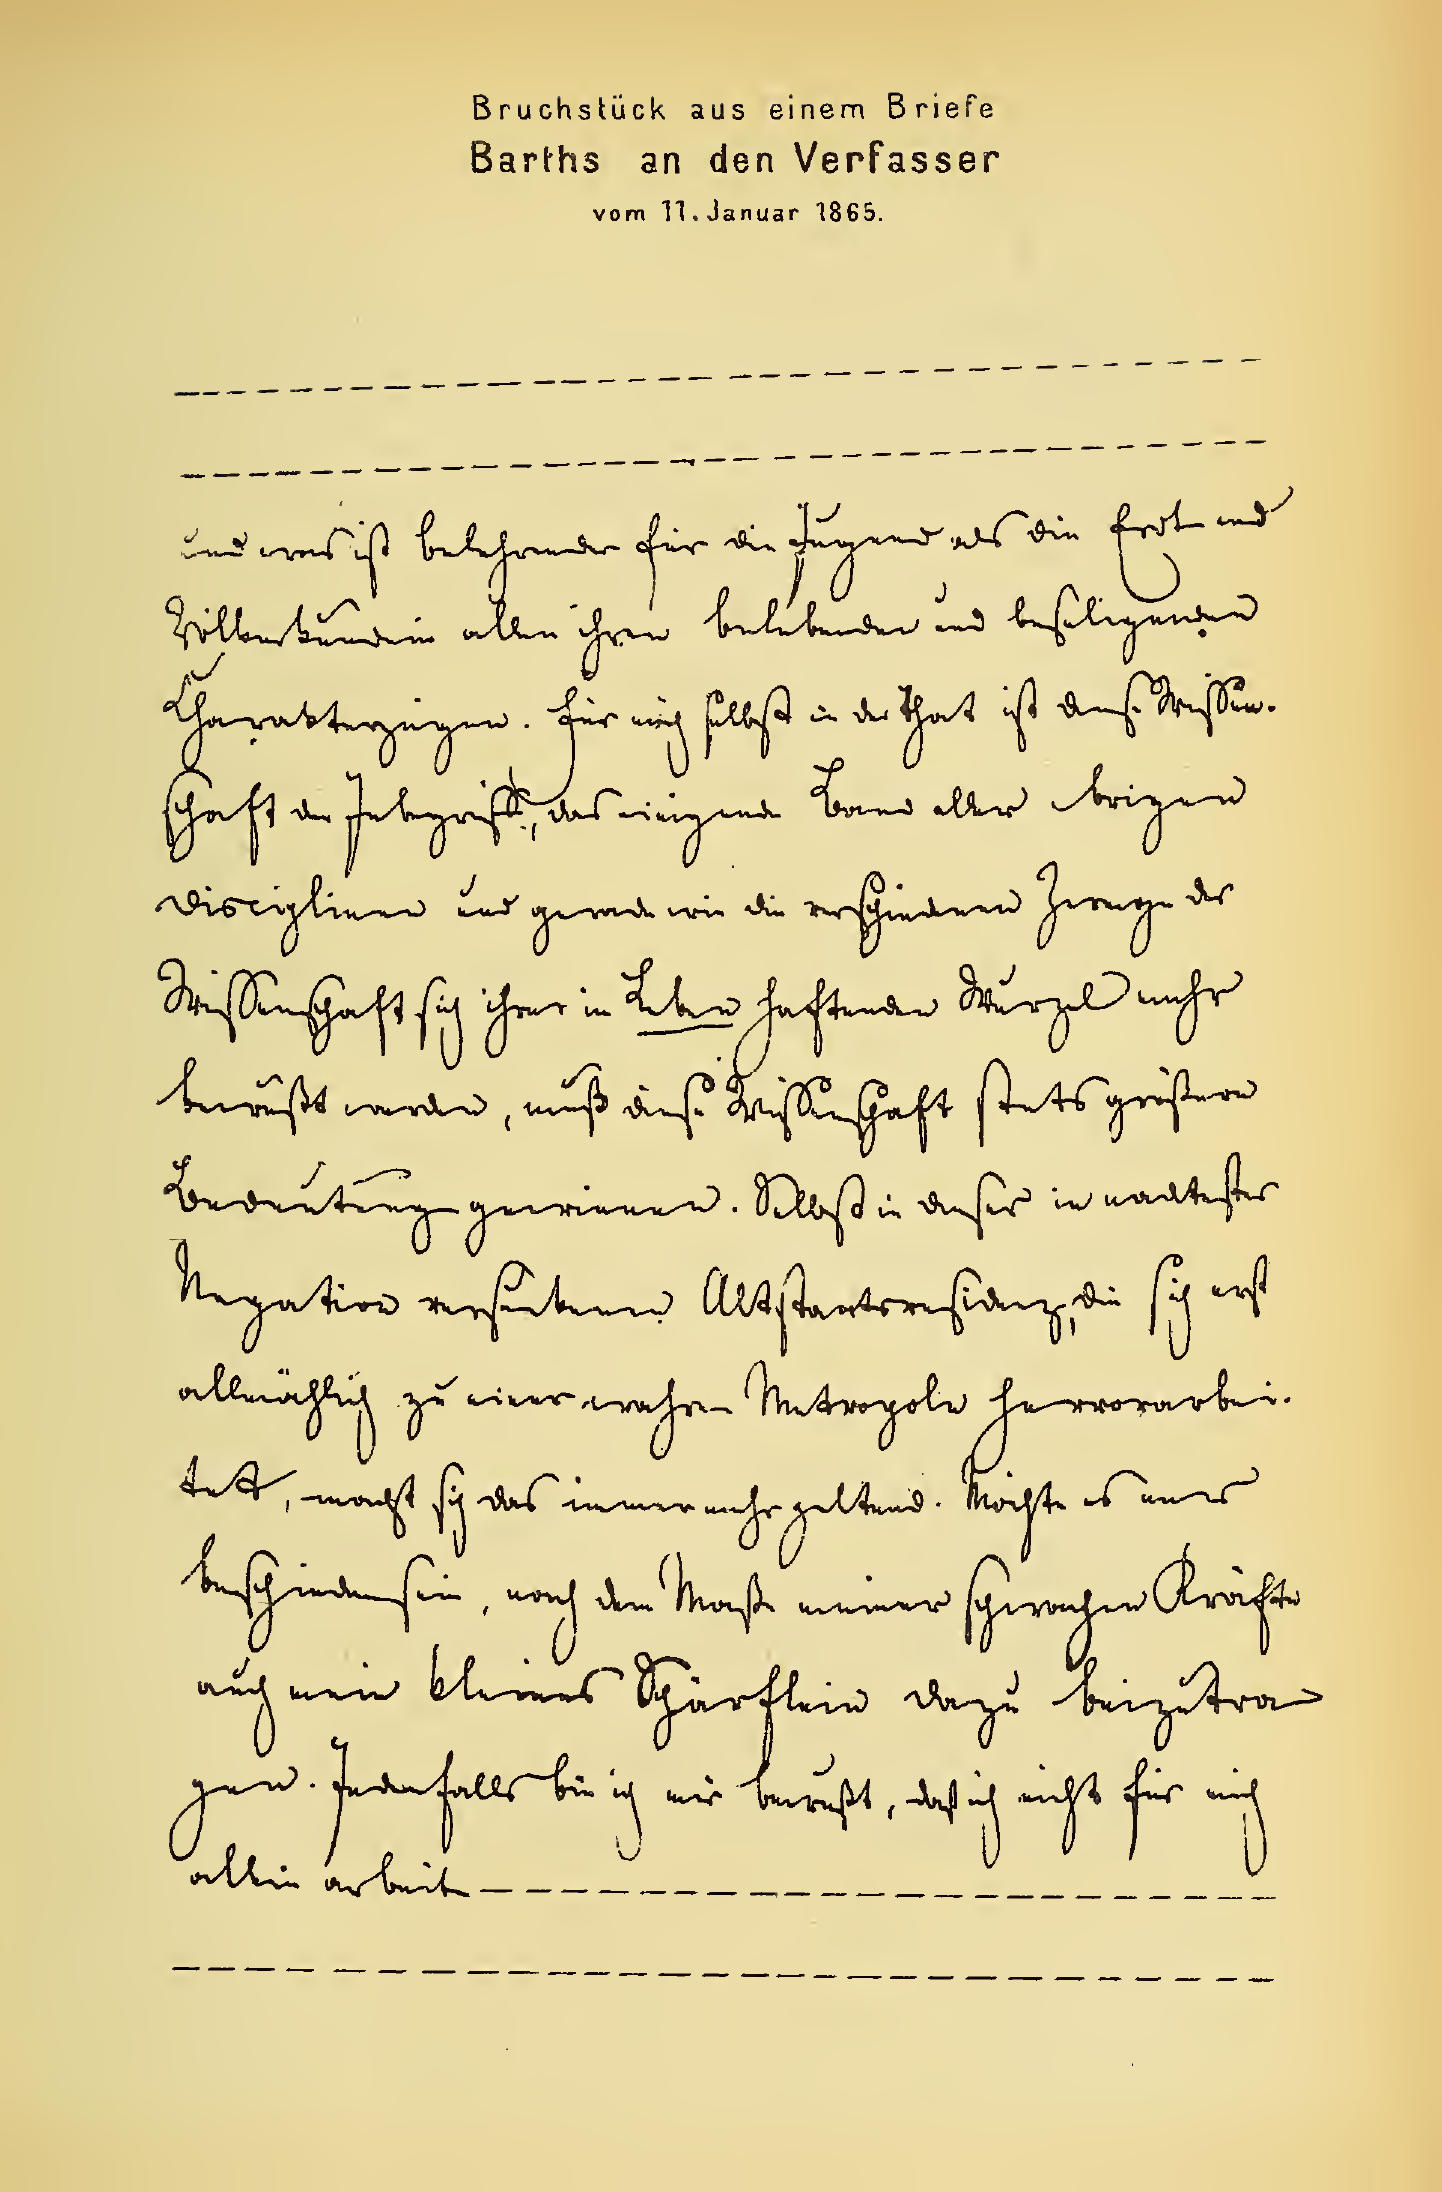 Bruchstück aus einem Briefe
Barths an den Verfasser
vom 11. Januar 1865.
und was ist belehrender für die Jugend als die Erd- und
Völkerkunde in allen ihren belebenden und beseligenden
Charakterzügen. Für mich selbst in der That ist diese Wissen-
schaft der Inbegriff, das einigende Band aller übrigen
Disciplinen und gerade wie die verschiedenen Zweige der
Wissenschaft sich ihrer im Leben haftenden Wurzel mehr
bewußt werden, muß diese Wissenschaft stets größere
Bedeutung gewinnen. Selbst in dieser in nacktester
Negation versunkenen Altstaatsresidenz, die sich erst
allmählich zu einer wahren Metropole hervorarbei-
tet, macht sich das immer mehr geltend. Möchte es mir
beschieden sein, nach dem Maße meiner schwachen Kräfte
auch mein kleines Schärflein dazu beizutra-
gen. Jedenfalls bin ich mir bewußt, daß ich nicht für mich
allein arbeite